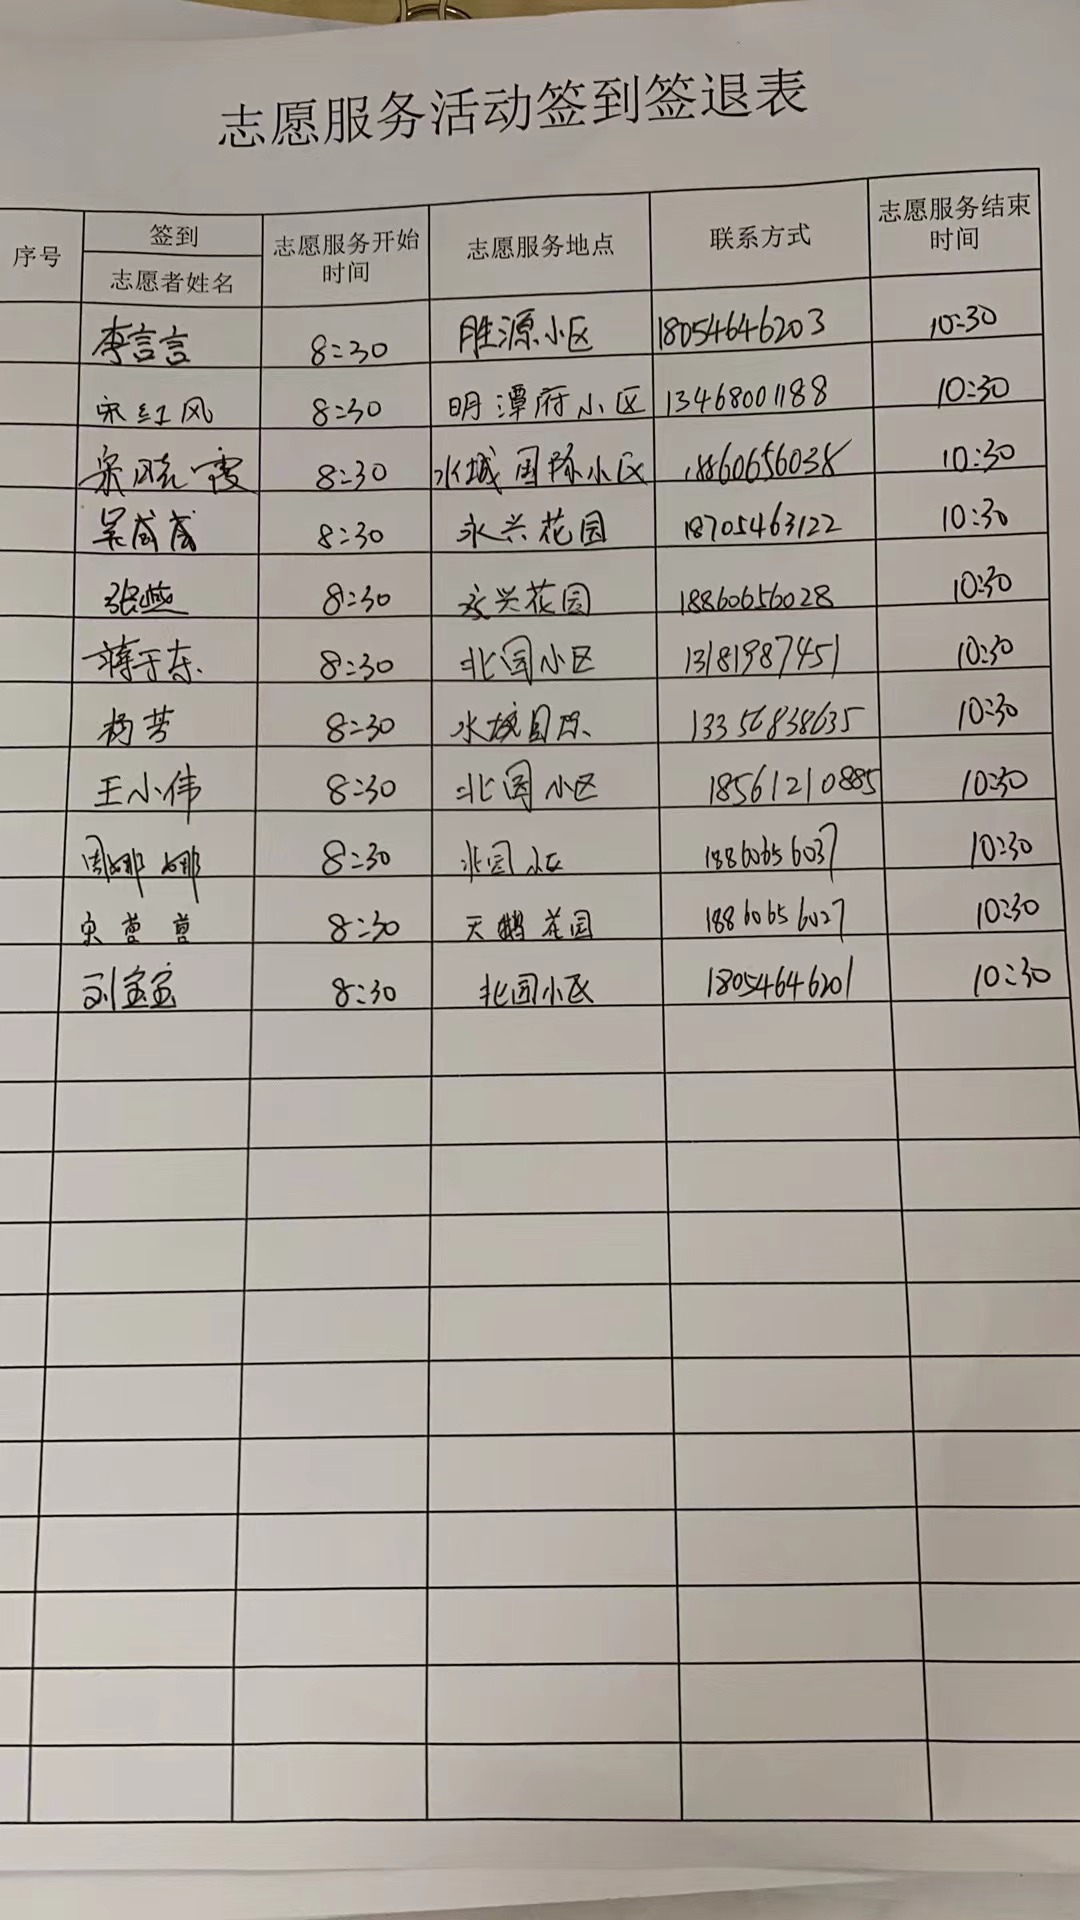 志愿服务活动签到签退表
序号 签到 志愿者姓名 志愿服务开始时间 志愿服务地点 联系方式 志愿服务结束时间
李言言 8:30 胜源小区 18054646203 10:30
宋红风 8:30 明潭府小区 13468001188 10:30
宋晓霞 8:30 水城国际小区 18860656038 10:30
吴茂茂 8:30 永兴花园 18705463122 10:30
张燕 8:30 永兴花园 18860656028 10:30
蒋于东 8:30 北园小区 13181987451 10:30
杨芳 8:30 水城国际 13356838635 10:30
王小伟 8:30 北园小区 18561210885 10:30
周娜娜 8:30 北园小区 18860656037 10:30
宋莹莹 8:30 天鹅花园 18860656027 10:30
刘宝宝 8:30 北园小区 18054646201 10:30